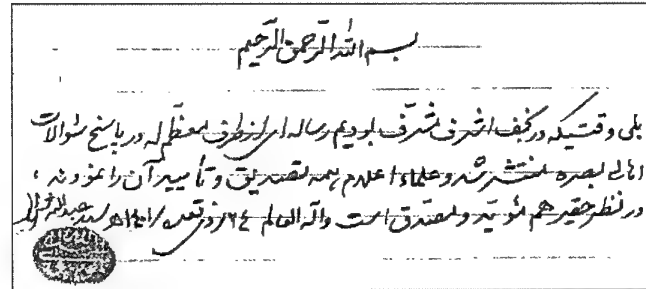 بسم الله الرحمن الرحیم
بلی وقتیکه در نجف اشرف مشرف بودیم رساله ای از طرف معظم له در پاسخ سئوالات
اهالی بصره منتشر شد و علماء اعلام همه تصدیق و تأیید آن را نمودند ،
در نظر حقیر هم مؤید و مصدق است والله العالم ٢٤ / ذی قعده / ١٤٠١ هـ سید عبدالله